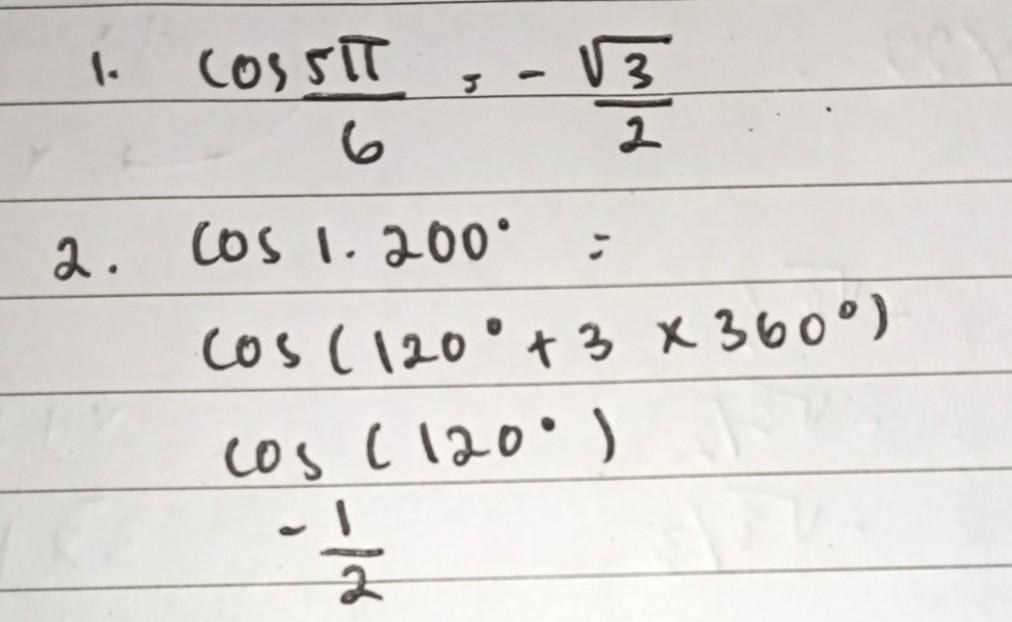 1. cos 5π/6 = - √3/2
2. cos 1.200° =
cos (120° + 3 × 360°)
cos (120°)
- 1/2